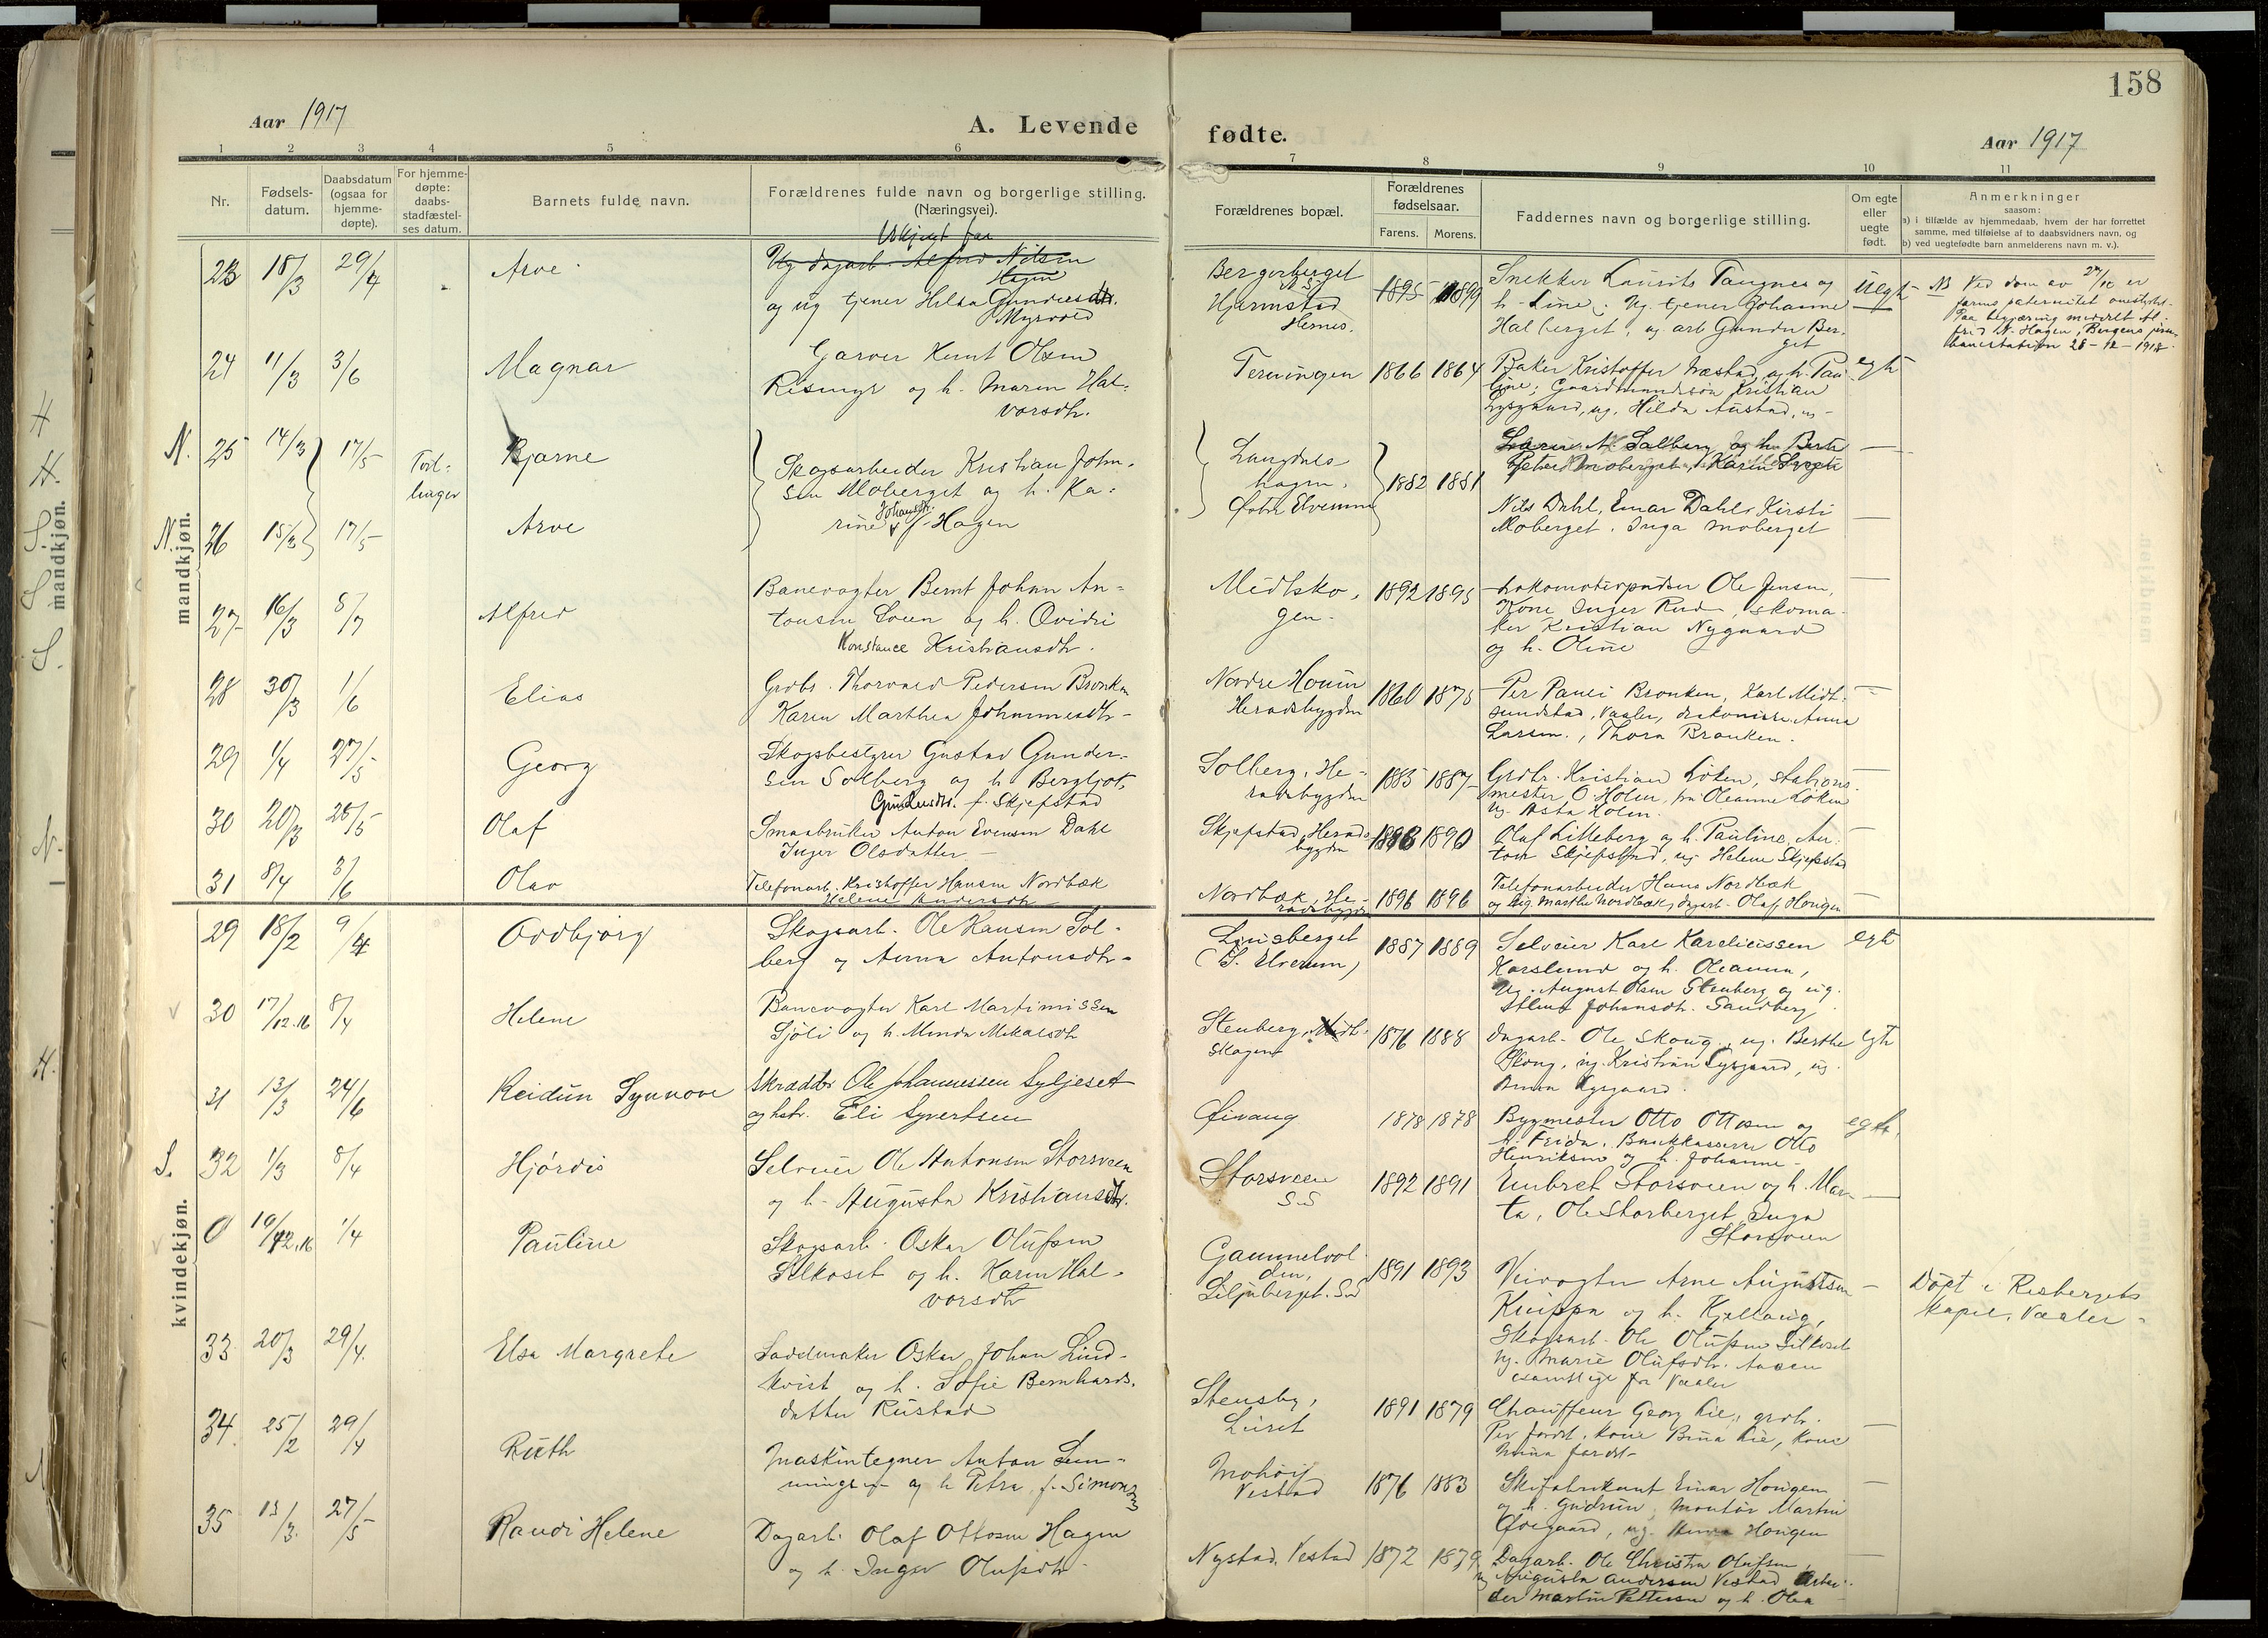 158
Aar 1917
A. Levende
fødte.
Aar 1917
1 2 3 4 5 6
7 8 9 10 11
Nr.
Fødsels-
datum.
Daabsdatum
(ogsaa for
hjemme-
døpte).
For hjemme-
døpte:
daabs-
stadfæstel-
ses datum.
Barnets fulde navn.
Forældrenes fulde navn og borgerlige stilling.
(Næringsvei).
Forældrenes bopæl.
Forældrenes
fødselsaar.
Farens. Morens.
Faddernes navn og borgerlige stilling.
Om egte
eller
uegte
født.
Anmerkninger
saasom:
a) i tilfælde av hjemmedaab, hvem der har forrettet
samme, med tilføielse af to daabsvidners navn, og
b) ved uegtefødte barn anmelderens navn m. v.).
mandkjøn.
23 18/3 29/4 Arve
Uskjent far
Ug dagarb. Alfred Nilsen
Hagen
og ug tjener Helga Gundersdtr.
Myrvold
Bergerberget
Hjernstad
Hernes.
1895 1899
Snekker Laurits Tangnes og
h. Line; Ug tjener Johanne
Halberget, og arb Gunder Ber-
get
Uegte
NB Ved dom av 27/12 er
farens paternitet
Paa begjæring meddelt Al-
fred N. Hagen, Bergens jern-
banestation 28-12-1918.
24 11/3 3/6 Magnar
Garver Knut Olsen
Rismyr og h. Maren Hal-
vorsdtr.
Terningen 1866 1864
Baker Kristoffer Næstad og h. Pau-
line; Gaardmandssøn Kristian
Lysgaard, ug. Hilda Austad, ug
egte
N. 25 14/3 17/5 Tvil-
linger
Bjarne
Skogsarbeider Kristian John-
sen Moberget og h. Ka-
rine Johansdtr. f. Hagen
Langdals-
hagen,
Østre Elverum
1882 1881
N. Solberg og h. Berte
Petter Moberget, Karin
N. 26 15/3 17/5 Arve
Nils Dahl, Einar Dahl, Kirsti
Moberget, Inga Moberget
27 16/3 8/7 Alfred
Banevogter Bernt Johan An-
tonsen Løen og h. Ovidri
Konstance Kristiansdtr.
Midtsko-
gen.
1892 1895
Lokomotivpudser Ole Jensen,
Kone Inger Rud, skoma-
ker Kristian Nygaard
og h. Oline
28 30/3 1/6 Elias
Grdbr. Thorvald Pedersen Bronken
Karen Marthea Johannesdtr
Nordre Honin
Heradsbygden
1860 1875
Per Pauli Bronken, Karl Midt-
sundstad, Vaaler, diakonisse Anna
Larsen, Thora Bronken.
29 1/4 27/5 Georg
Skogsbestyrer Gustav Gunder-
sen Solberg og h. Bergljot,
Gundersdtr. f. Skjefstad
Solberg, He-
radsbygden
1885 1887
Grdbr. Kristian Løken, stations-
mester O. Holen, fru Oleanne Løken
ug Asta Holen.
30 20/3 28/5 Olaf
Smaabruker Anton Evensen Dahl
Inger Olsdatter
Skjefstad, Herads-
bygden
1888 1890
Olaf Lilleberg og h. Pauline, An-
ton Skjefstad, ug Helene Skjefstad
31 8/4 3/6 Olav
Telefonarb. Kristoffer Hansen Nordbæk
Helene Andersdtr
Nordbæk, He-
radsbygden
1896 1896
Telefonarbeider Hans Nordbæk
og ug Marthe Nordbæk, dagarb. Olaf Horigen
kvindekjøn.
29 18/2 9/4 Oddbjørg
Skogsarb. Ole Hansen Sol-
berg og Anna Antonsdtr.
Linsberget
(S. Elverum)
1887 1889
Selveier Karl Karelicissen
Karslund og h. Oleanna,
Ug. August Olsen Stenberg og ug.
Johansdtr. Sandberg
egte
30 17/12.16 8/4 Helene
Banevogter Karl Martinissen
Sjøli og h. Minda Mikalsdtr
Stenberg, Midt-
skogen
1876 1888
Dagarb. Ole Skoug, ug. Berthe
Skoug, ug. Kristian Lysgaard, ug.
Anna Lysgaard.
egte
31 13/3 24/6 Reidun Synnøve
Skrædder Ole Johannessen Syljeset
og hstr. Eli Syvertsen
Øivang 1878 1878
Bygmester Otto Ottosen og
h. Frida. Bankkasserer Otto
Henriksen og h. Johanne
egte.
S. 32 1/3 8/4 Hjørdis
Selveier Ole Antonsen Storsveen
og h. Augusta Kristiansdtr.
Storsveen
S.S
1892 1891
Embret Storsveen og h. Mar-
ta, Ole Storberget, Inga
Storsveen
0 10/12.16 1/4 Pauline
Skogsarb. Oskar Olufsen
Silkoset og h. Karen Hal-
vorsdtr
Gammelvol-
den,
Liljeberget. S.S
1891 1893
Veivogter Arne Augustsen
Knippa og h. Kjellaug,
Skogsarb. Ole Olufsen Silkoset
Ug. Marie Olufsdtr. Aasen
samtlige fra Vaaler
Døpt i Risbergets
kapel, Vaaler
33 20/3 29/4 Elsa Margrete
Sadelmaker Oskar Johan Lind-
kvist og h. Sofie Bernhards-
datter Rustad
Stensby,
Leiret
1891 1879
Chauffeur Georg Lie, grdbr.
Per Jordet, kone Bina Lie, kone
Mina Jordet
34 25/2 29/4 Ruth
Maskintegner Anton Lem-
mingsen og h. Petra f. Simonsen
Mohøi
Vestad
1876 1883
Skifabrikant Einar Horigen
og h. Gudrun, montør Martin
Ødegaard, ug. Anna Horigen
35 13/3 27/5 Randi Helene
Dagarb. Olaf Ottosen Hagen
og h. Inger Olufsdtr.
Nystad, Vestad 1872 1879
Dagarb. Ole Christian Olufsen,
ug Augusta Andersen Vestad Arbei-
der Martin Pettersen og h. Olea